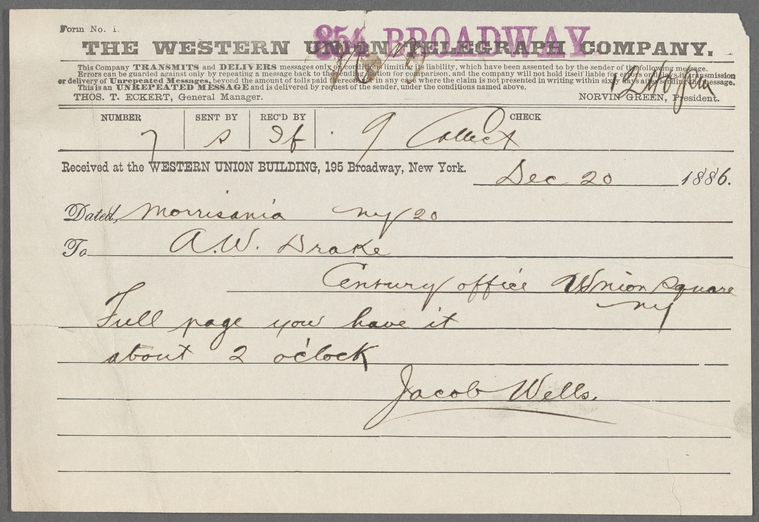 Form No. 1.
854 BROADWAY
THE WESTERN UNION TELEGRAPH COMPANY.
This Company TRANSMITS and DELIVERS messages only on conditions limiting its liability, which have been assented to by the sender of the following message.
Errors can be guarded against only by repeating a message back to the sending station for comparison, and the company will not hold itself liable for errors or delays in transmission
or delivery of Unrepeated Messages, beyond the amount of tolls paid thereon, nor in any case where the claim is not presented in writing within sixty days after sending the message.
This is an UNREPEATED MESSAGE and is delivered by request of the sender, under the conditions named above.
THOS. T. ECKERT, General Manager. NORVIN GREEN, President.
NUMBER SENT BY REC'D BY CHECK
7 S 9 Collect
Received at the WESTERN UNION BUILDING, 195 Broadway, New York.
Dec 20 1886.
Dated, Morrisania NY 20
To A.W. Drake
Century office Union Square
NY
Full page you have it
about 2 o'clock
Jacob Wells.